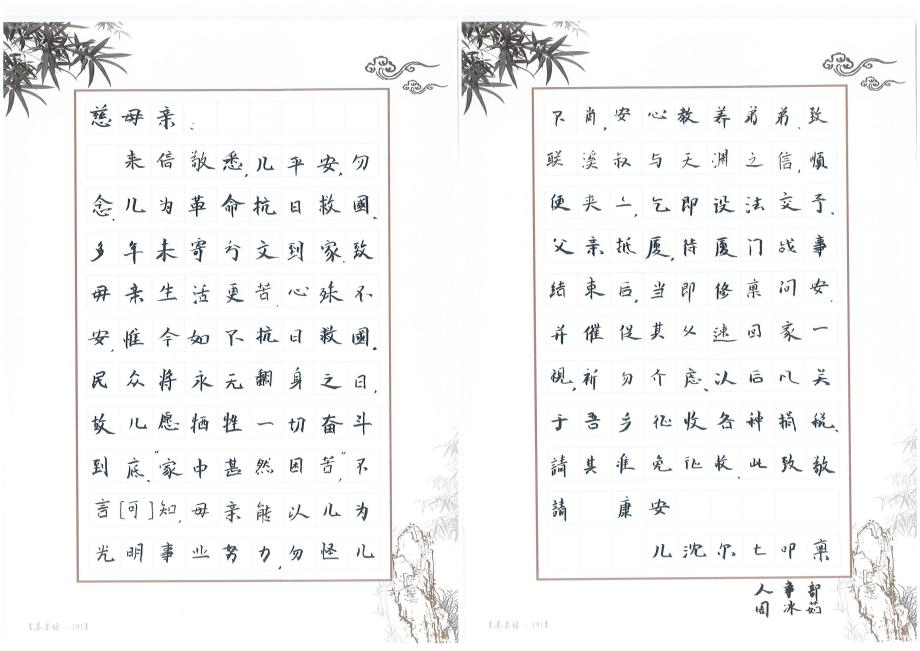 慈母亲：
来信敬悉，儿平安，勿
念，儿为革命抗日救國，
多年未寄兮文到家，致
母亲生活更苦，心殊不
安，惟今如不抗日救國。
民众将永无翻身之日，
故儿愿牺牲一切奋斗
到底，“家中甚然困苦”，不
言[可]知，母亲能以儿为
光明事业努力，勿怪儿
不肖，安心教养弟弟、致
联溪叔与天渊之信，烦
便夹上，乞即设法交予。
父亲抵厦，待厦门战事
结束后，当即修禀问安，
并催促其父速回家一
视，祈勿介虑、以后凡关
于吾乡征收各种捐税、
請其准免征收，此致敬
請 康安
儿沈尔七叩禀
【 — 191】
【 — 191】